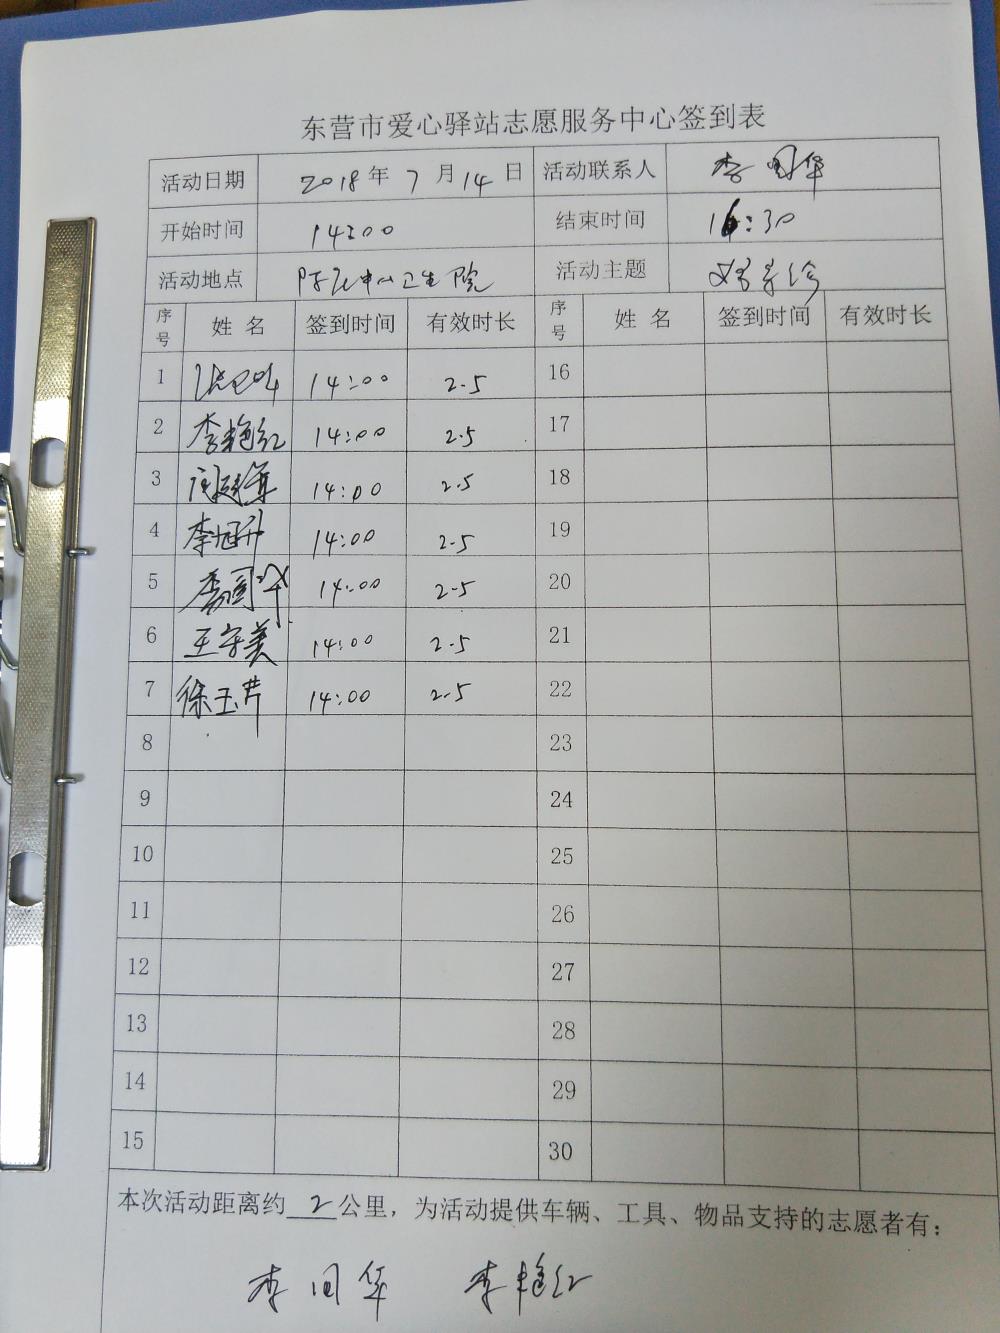 东营市爱心驿站志愿服务中心签到表
活动日期 2018年 7月14日 活动联系人 李国华
开始时间 14:00 结束时间 16:30
活动地点 中心卫生院 活动主题
序号 姓名 签到时间 有效时长 序号 姓名 签到时间 有效时长
1 14:00 2.5 16
2 李艳红 14:00 2.5 17
3 14:00 2.5 18
4 李旭升 14:00 2.5 19
5 李国华 14:00 2.5 20
6 王守美 14:00 2.5 21
7 徐玉芹 14:00 2.5 22
8 23
9 24
10 25
11 26
12 27
13 28
14 29
15 30
本次活动距离约 2 公里，为活动提供车辆、工具、物品支持的志愿者有：
李国华 李艳红